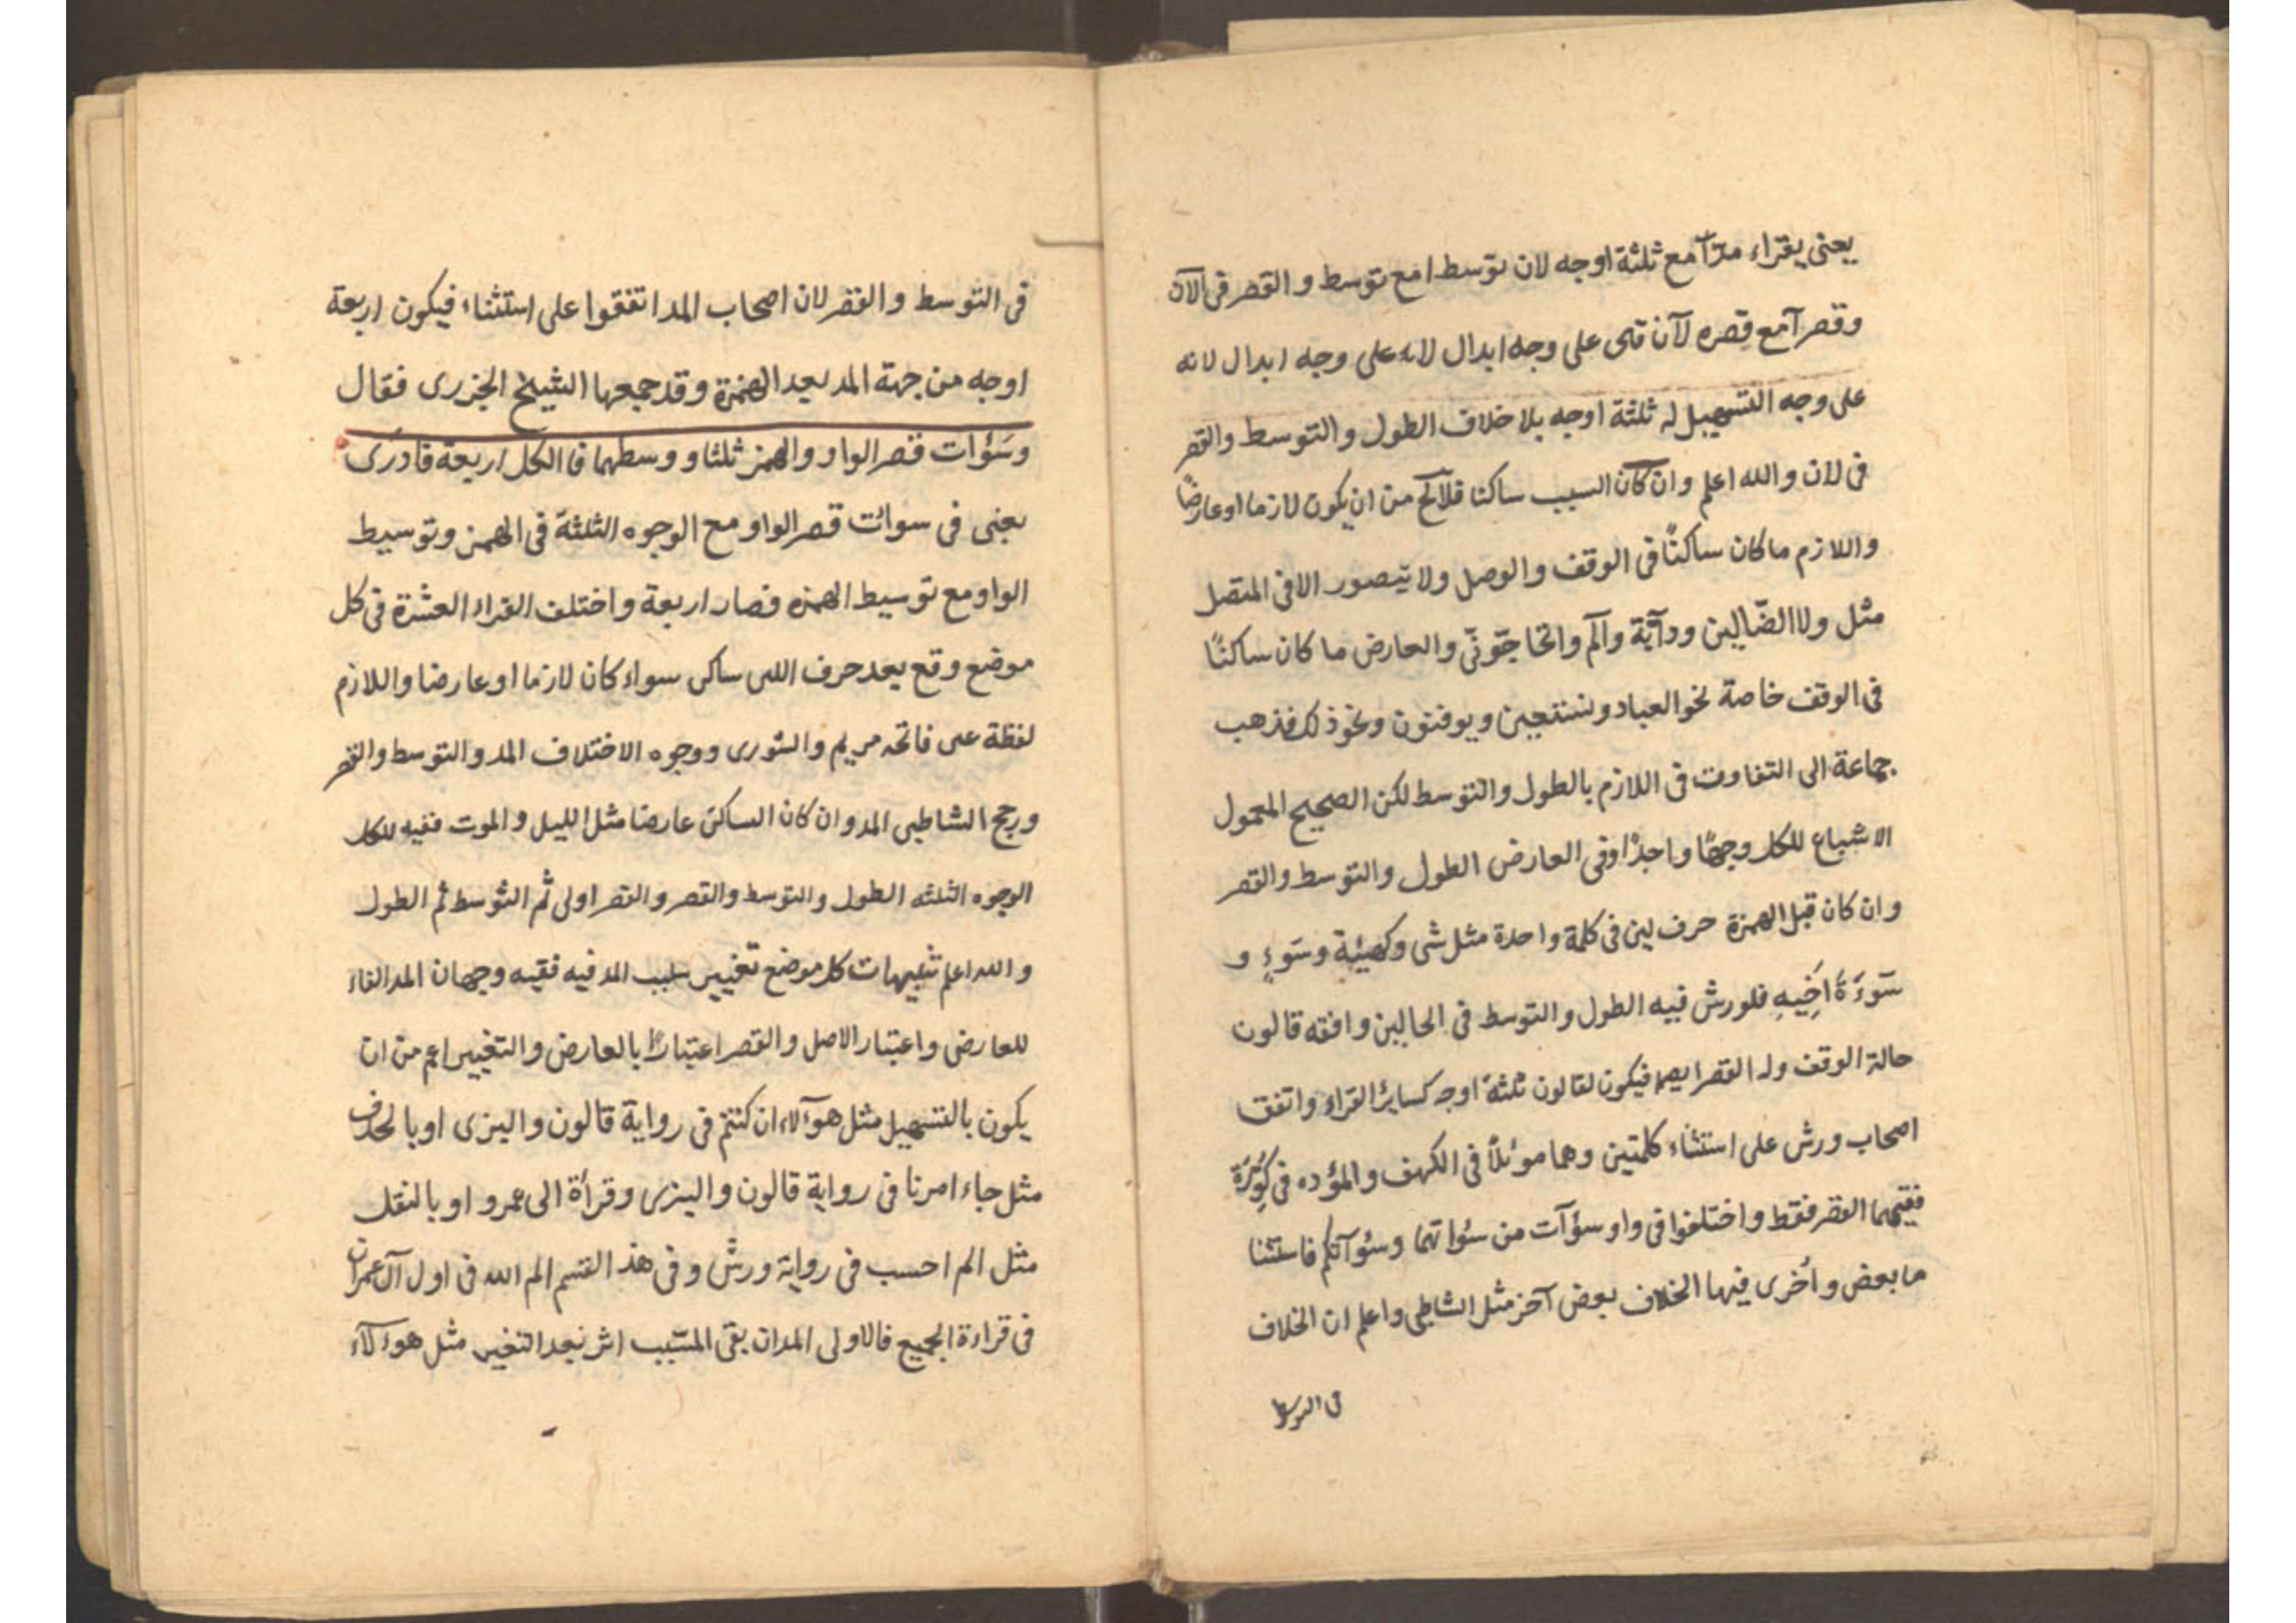 يعنى يقراء مدّآ مع ثلثة اوجه لان توسط امع توسط والقصر فى الآن
وقصر آمع قصره لآن على وجه ابدال لانه على وجه ابدال لانه
على وجه التسهيل له ثلثة اوجه بلا خلاف الطول والتوسط والقصر
فى لان والله اعلم وان كان السبب ساكنا فلا من ان يكون لازما اوعارضًا
واللازم ما كان ساكنًا فى الوقف والوصل ولا يتصور الا فى المتصل
مثل ولا الضّالين ودآبّة وآلم واتحاجّونّى والعارض ما كان ساكنًا
فى الوقف خاصة نحو العباد ونستعين ويوقنون ونحو ذلك فذهب
جماعة الى التفاوت فى اللازم بالطول والتوسط لكن الصحيح المعمول
الاشباع للكل وجهًا واحدًا وفى العارض الطول والتوسط والقصر
وان كان قبل الهمزة حرف لين فى كلمة واحدة مثل شى وكهيئة وسَوءٍ و
سَوءَةَ اَخِيهِ فلورش فيه الطول والتوسط فى الحالين وافقه قالون
حالة الوقف وله القصر ايضا فيكون لقالون ثلثة اوجه كسائر القراء واتفق
اصحاب ورش على استثناء كلمتين وهما موئلاً فى الكهف والمؤده فى كُوِّرَة
ففيهما القصر فقط واختلفوا فى واو سؤآت من سئواتهما وسئوآتكم فاستثنا
ها بعض واُخرى فيها الخلاف بعض آخر مثل الشاطبى واعلم ان الخلاف
فى التوسط
فى التوسط والقصر لان اصحاب المد اتفقوا على استثناء فيكون اربعة
اوجه من جهة المد بعد الهمزة وقد جمعها الشيخ الجزرى فقال
وسَوْآت قصر الواو والهمز ثلثا ووسطهما فا الكل اربعة فادرى
يعنى فى سوائت قصر الواو مع الوجوه الثلثة فى الهمز وتوسيط
الواو مع توسيط الهمزه فصار اربعة واختلف القراء العشرة فى كل
موضع وقع بعد حرف اللين ساكن سواء كان لازما اوعارضا واللازم
لفظة عين فاتحه مريم والشورى ووجوه الاختلاف المد والتوسط والقصر
ورجح الشاطبى المد وان كان الساكن عارضا مثل الليل والموت ففيه للكل
الوجوه الثلثه الطول والتوسط والقصر والقصر اولى ثم التوسط ثم الطول
والله اعلم تنبيهات كل موضع تغيير سبب المد فيه ففيه وجهان المد الغاء
للعارض واعتبار الاصل والقصر اعتبارًا بالعارض والتغيير اعم من ان
يكون بالتسهيل مثل هوآلاء ان كنتم فى رواية قالون والبزى اوبا لحذف
مثل جاء امرنا فى رواية قالون والبزى وقرأة ابى عمرو اوبا لنقل
مثل الم احسب فى رواية ورش وفى هذ القسم الم الله فى اول آل عمران
فى قراءة الجميع فالاولى المد ان بقى المسبّب اثر بعد التغير مثل هوءلآء